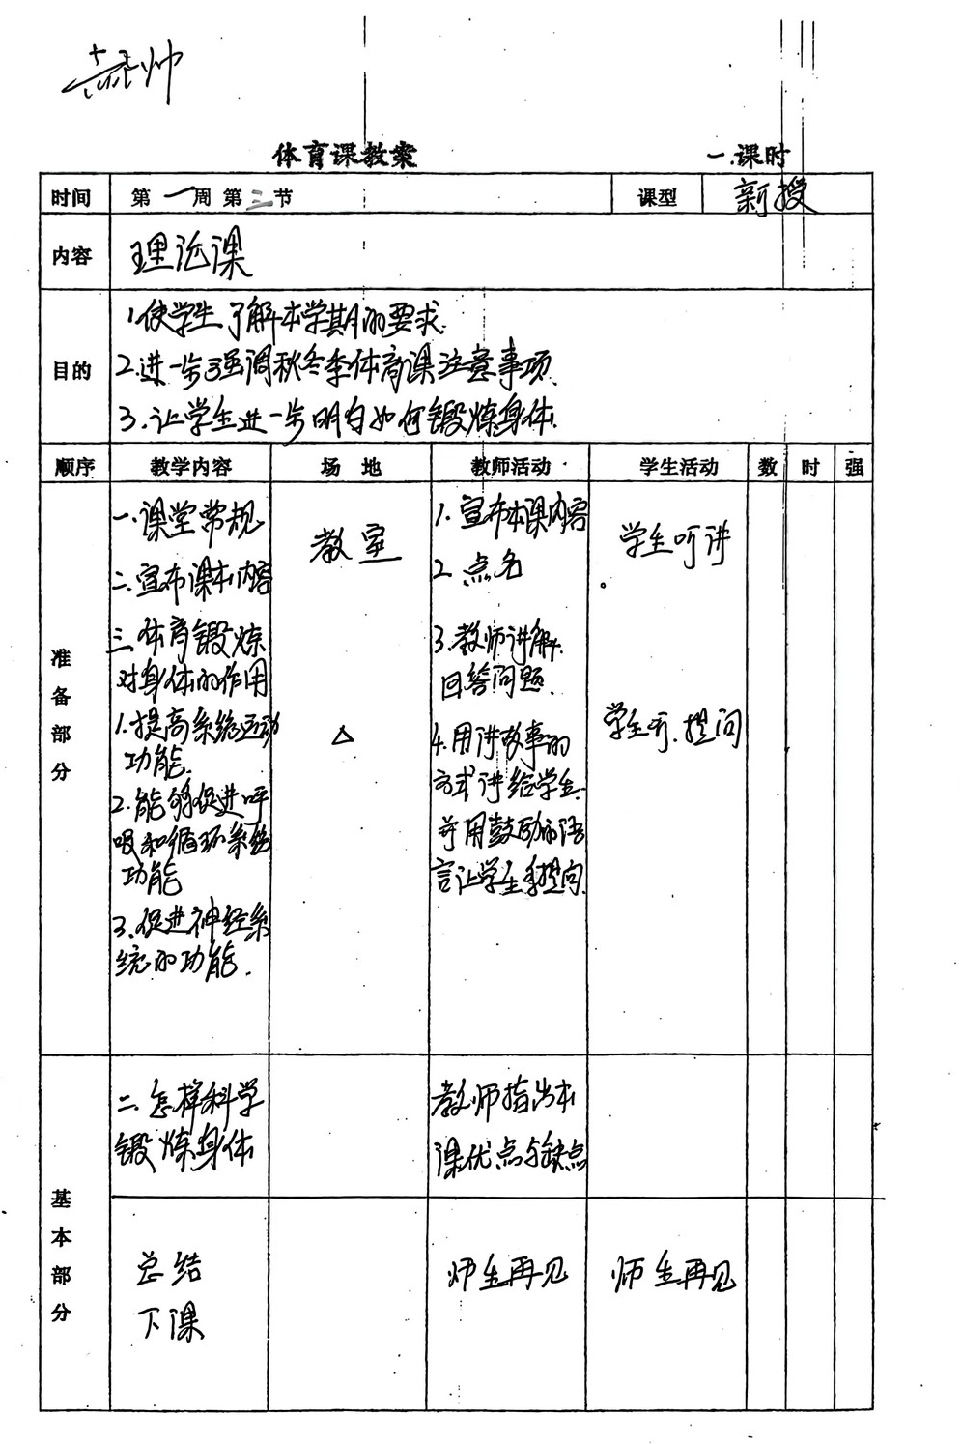 体育课教案
一.课时
时间 第一周 第三节 课型 新授
内容 理论课
目的
1.使学生了解本学期的要求.
2.进一步强调秋冬季体育课注意事项.
3.让学生进一步明白如何锻炼身体.
顺序 教学内容 场地 教师活动 学生活动 数 时 强
准备部分
一.课堂常规
二.宣布课本内容
三.体育锻炼
对身体的作用
1.提高系统运动
功能.
2.能够促进呼
吸和循环系统
功能
3.促进神经系
统的功能.
教室
1.宣布本课内容
2.点名
3.教师讲解.
回答问题.
4.用讲故事的
方式讲给学生.
并用鼓励的语
言让学生多提问.
学生听讲
学生听.提问
基本部分
二.怎样科学
锻炼身体
教师指出本
课优点与缺点
总结
下课
师生再见
师生再见